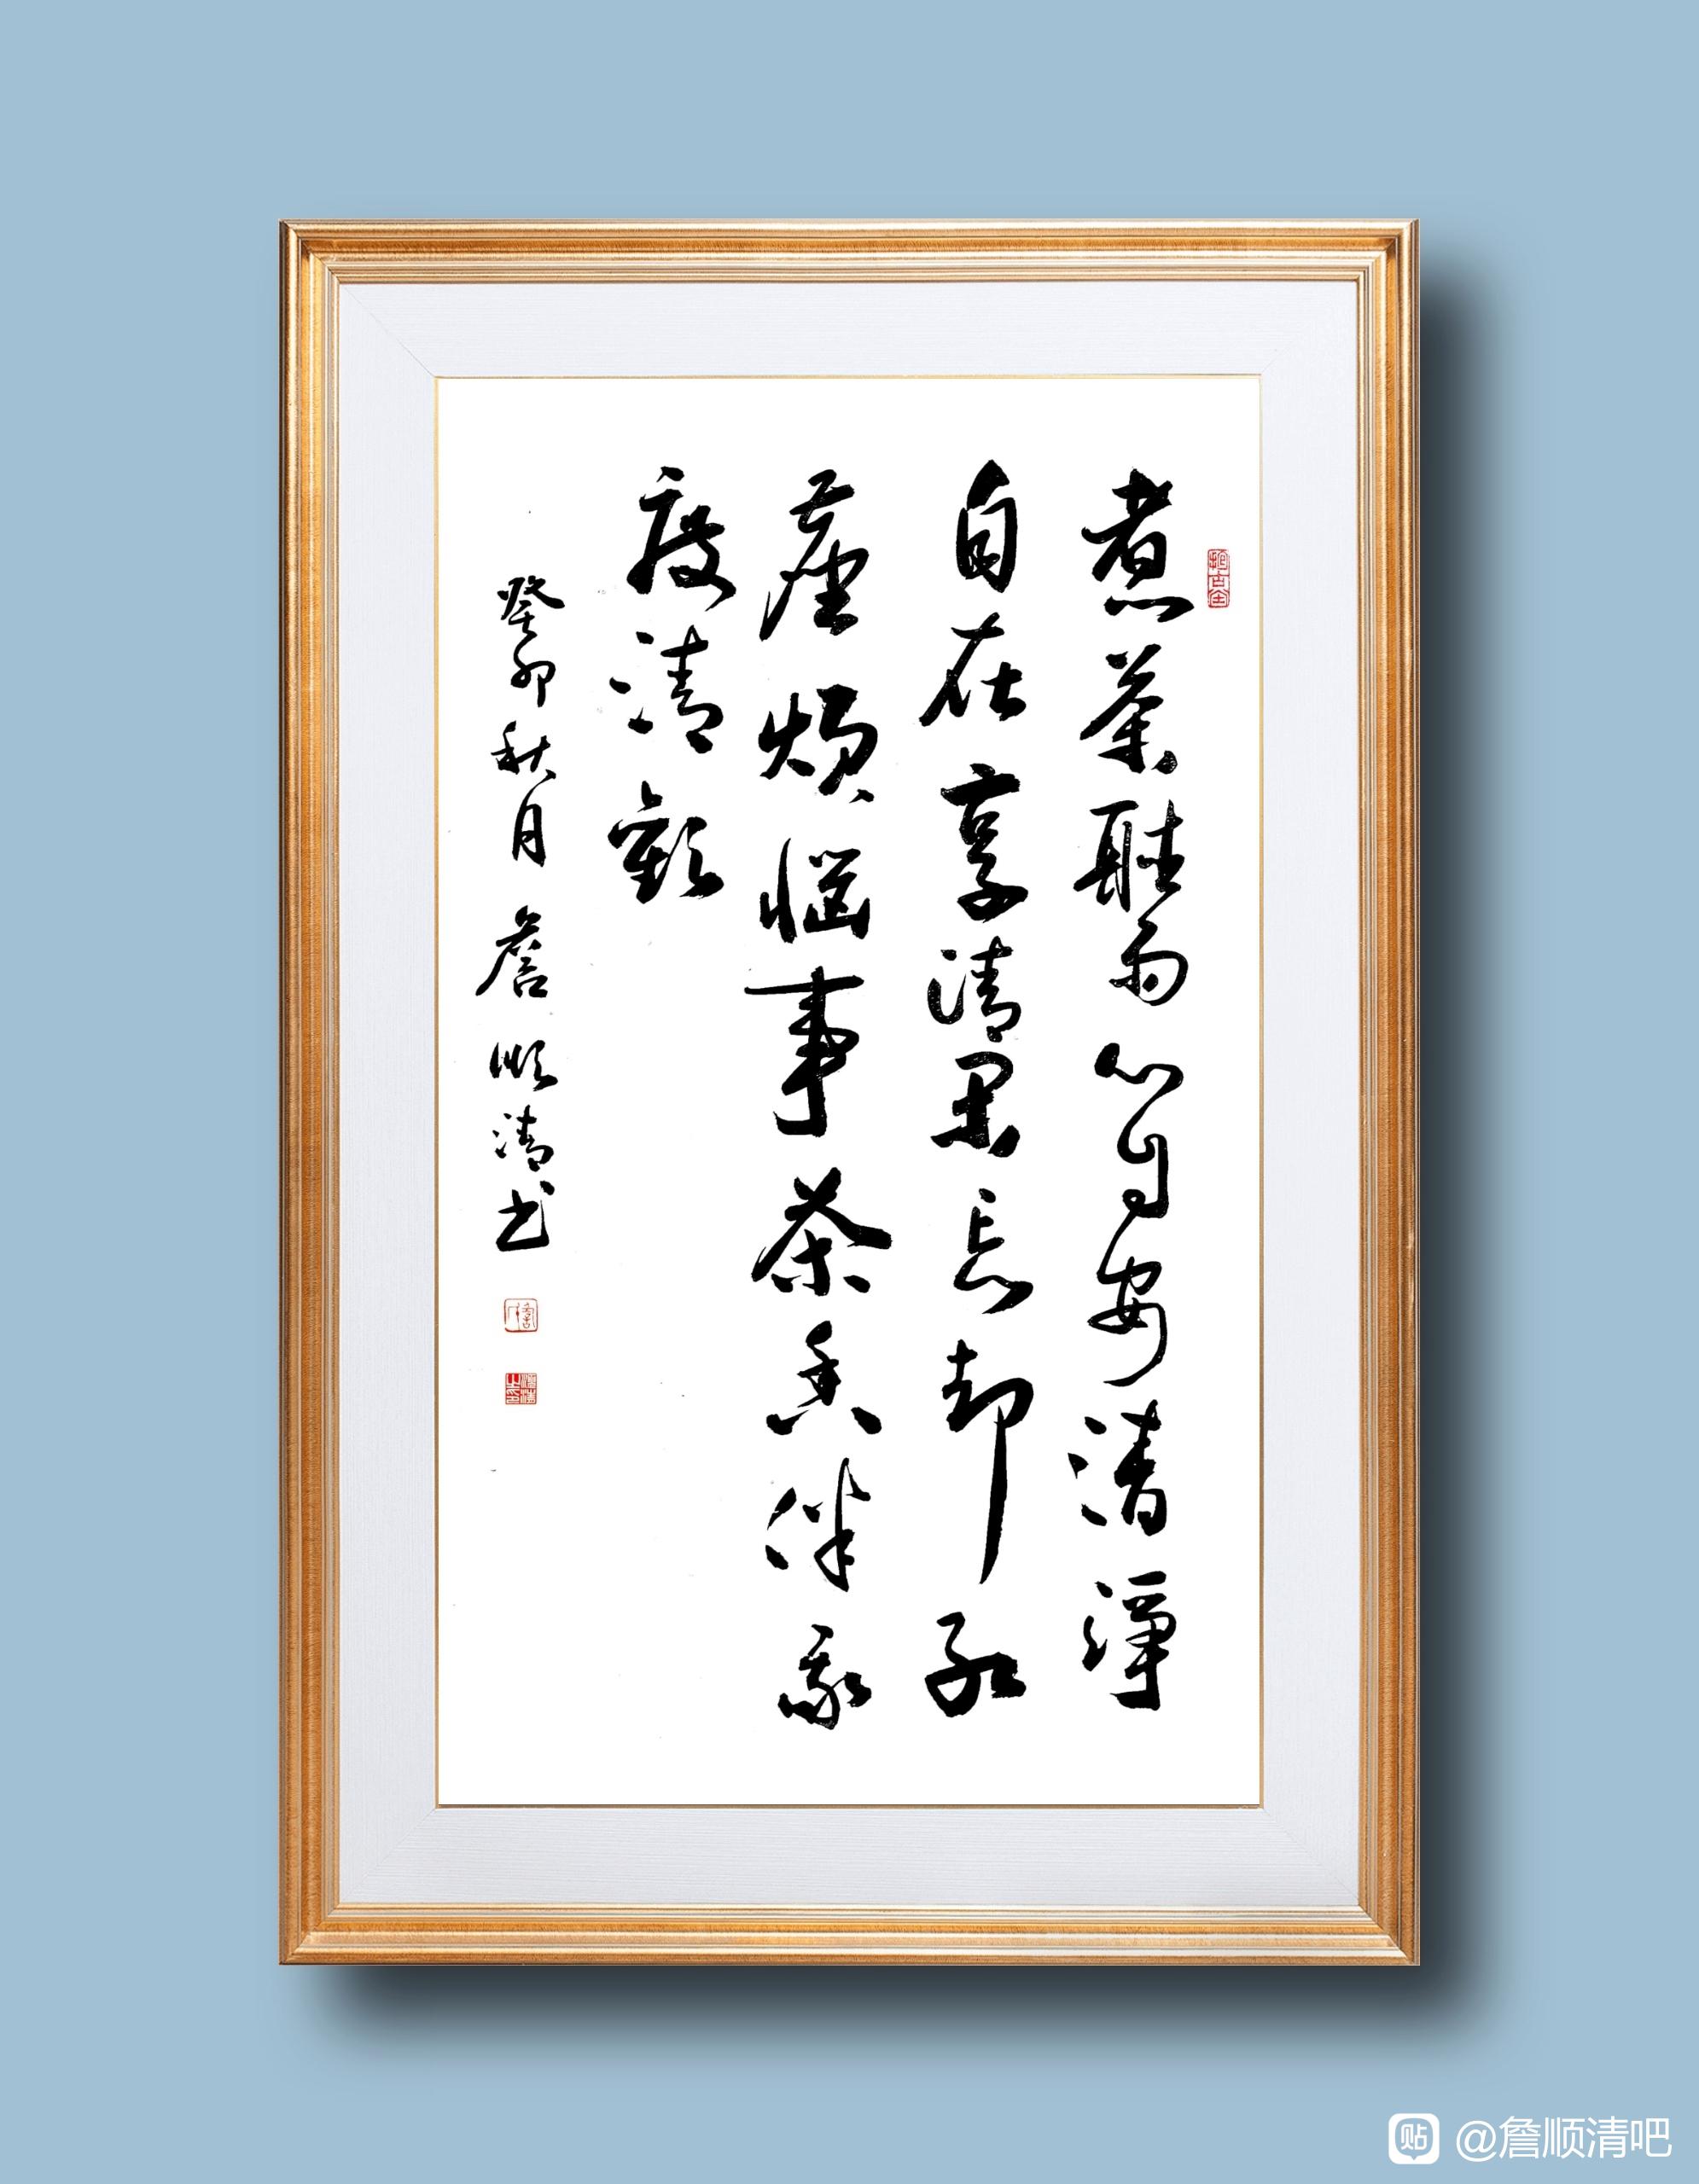 煮茶聽雨心自安清淨
自在享清閑忘却紅
塵煩惱事茶香伴我
度清歡
癸卯秋月 詹順清书
贴 @詹顺清吧